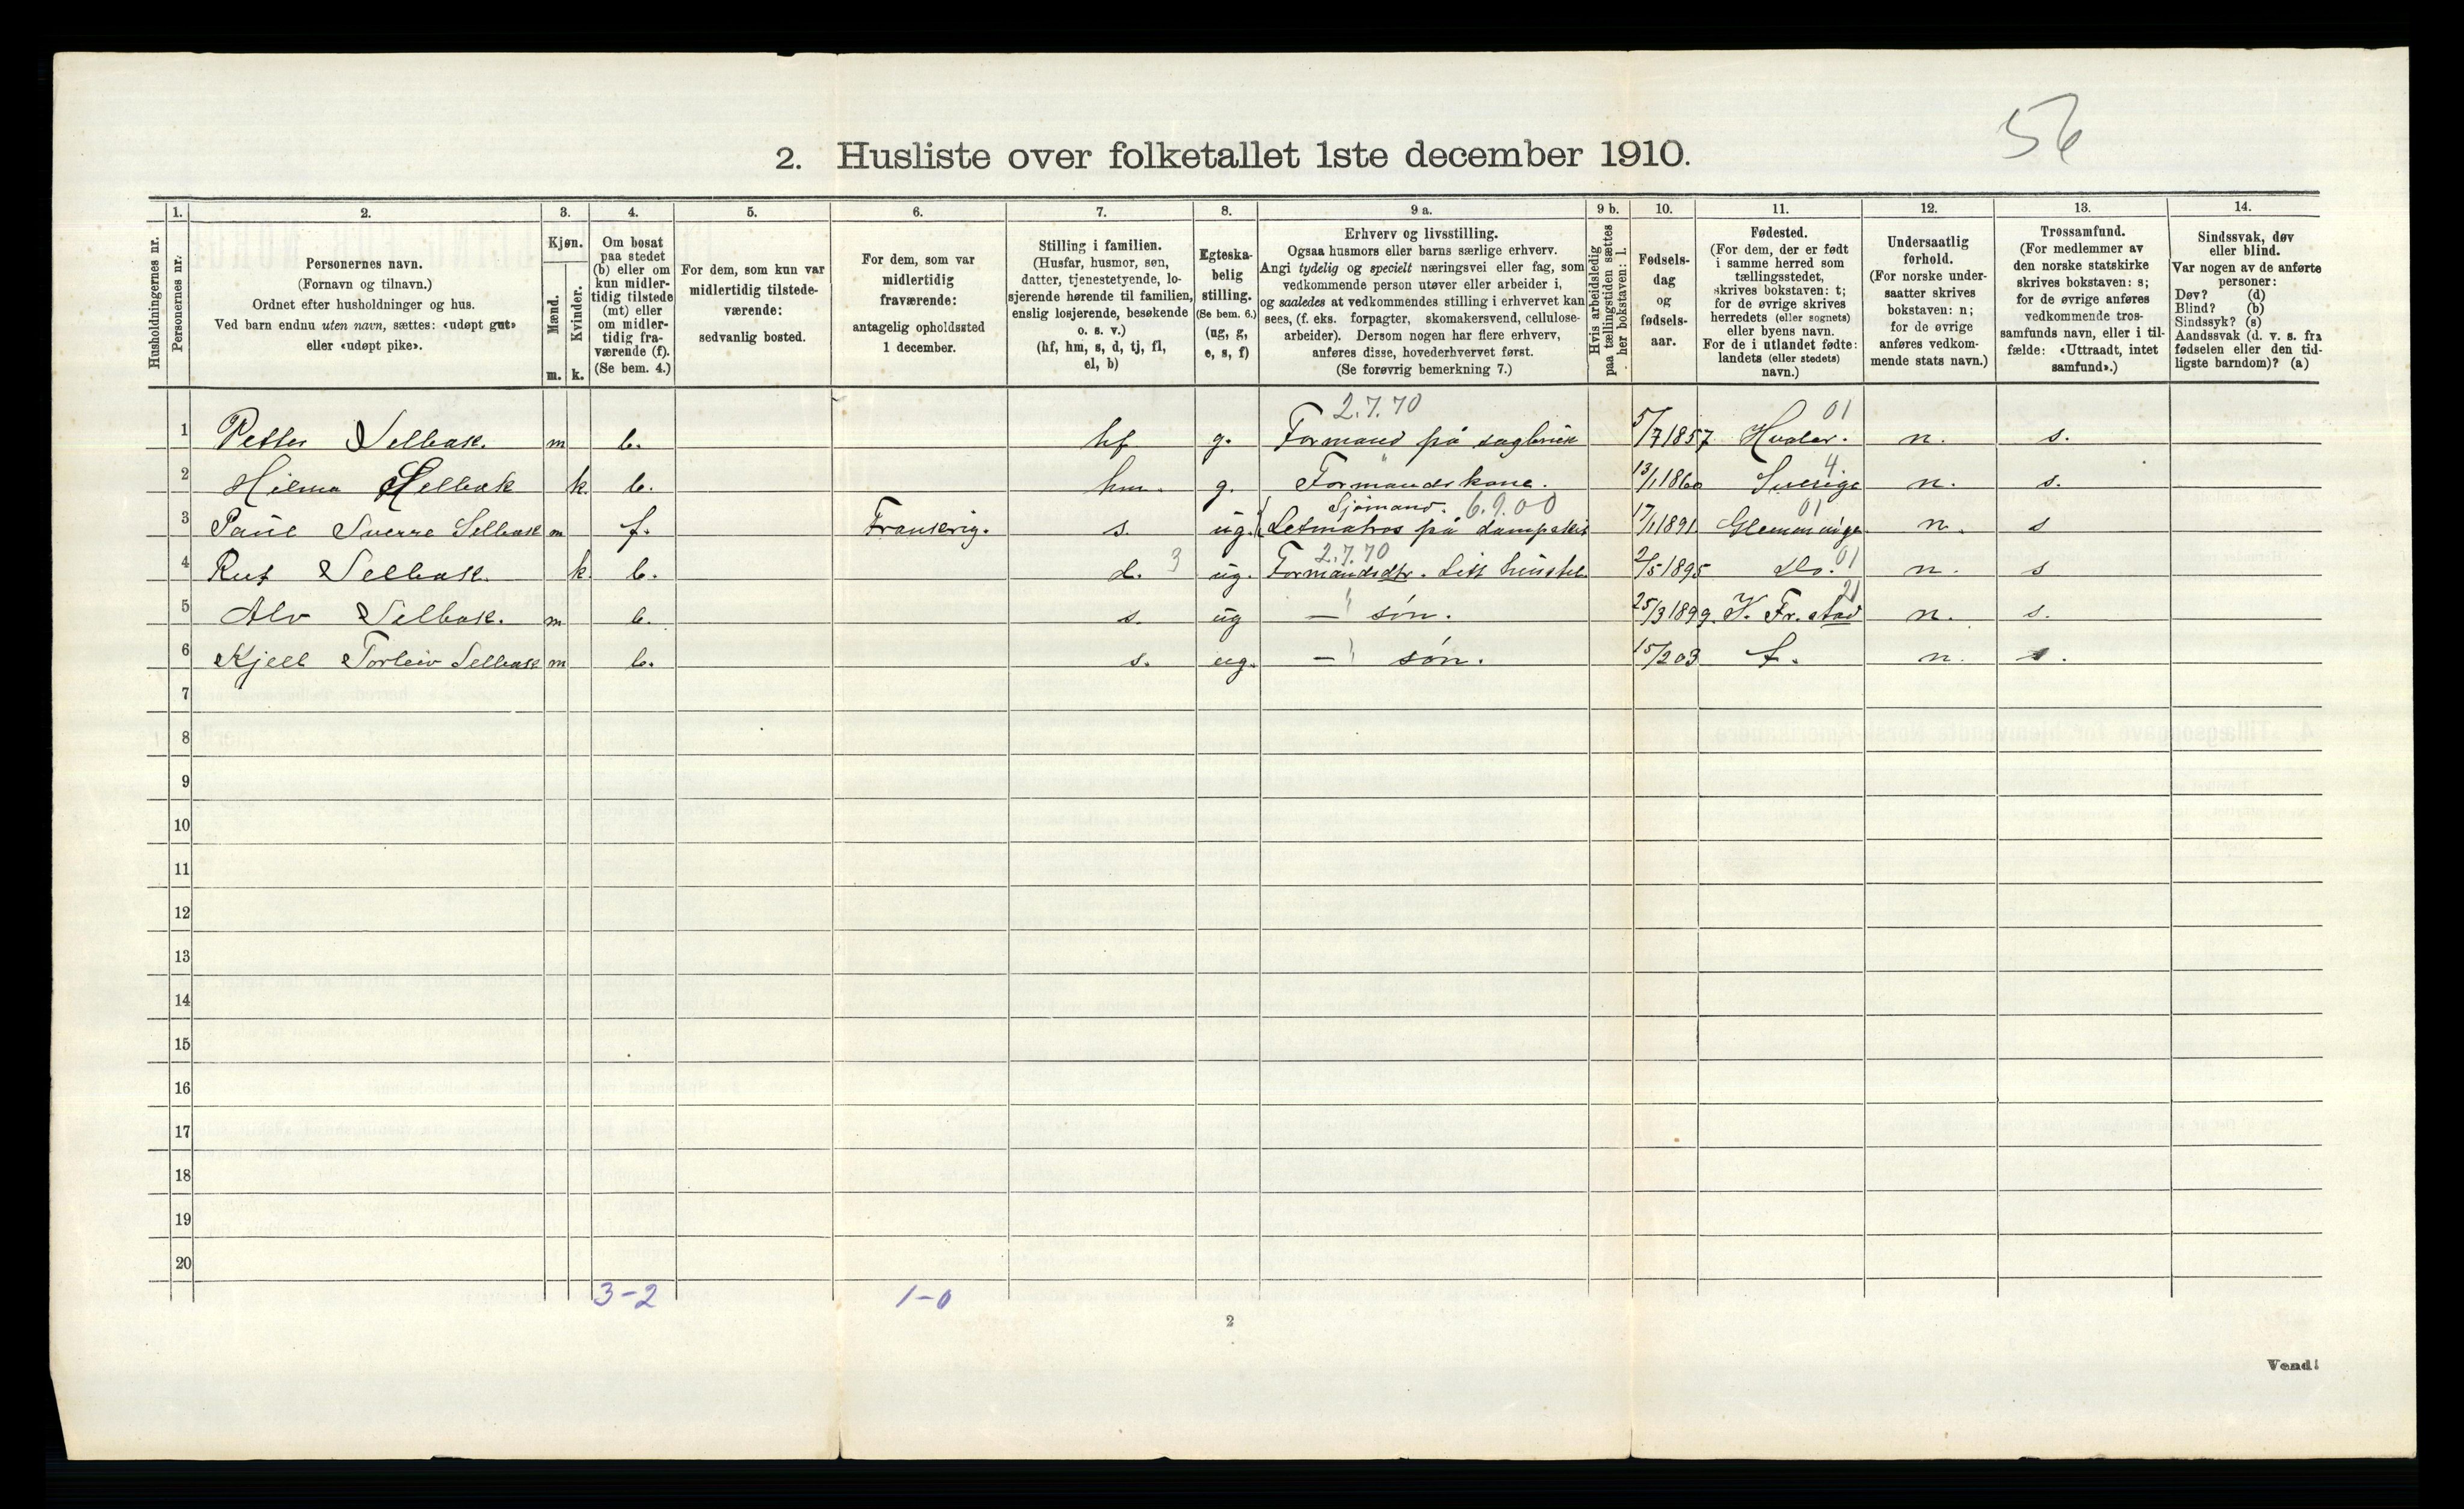 56
2. Husliste over folketallet 1ste december 1910.
Husholdningernes nr.
1.
Personernes nr.
2.
Personernes navn.
(Fornavn og tilnavn.)
Ordnet efter husholdninger og hus.
Ved barn endnu uten navn, sættes: «udøpt gut»
eller «udøpt pike».
3.
Kjøn.
Mænd.
Kvinder.
m. k.
4.
Om bosat
paa stedet
(b) eller om
kun midler-
tidig tilstede
(mt) eller
om midler-
tidig fra-
værende (f).
(Se bem. 4.)
5.
For dem, som kun var
midlertidig tilstede-
værende:
sedvanlig bosted.
6.
For dem, som var
midlertidig
fraværende:
antagelig opholdssted
1 december.
7.
Stilling i familien.
(Husfar, husmor, søn,
datter, tjenestetyende, lo-
sjerende hørende til familien,
enslig losjerende, besøkende
o. s. v.)
(hf, hm, s, d, tj, fl,
el, b)
8.
Egteska-
belig
stilling.
(Se bem. 6.)
(ug, g,
e, s, f)
9 a.
Erhverv og livsstilling.
Ogsaa husmors eller barns særlige erhverv.
Angi tydelig og specielt næringsvei eller fag, som
vedkommende person utøver eller arbeider i,
og saaledes at vedkommendes stilling i erhvervet kan
sees, (f. eks. forpagter, skomakersvend, cellulose-
arbeider). Dersom nogen har flere erhverv,
anføres disse, hovederhvervet først.
(Se forøvrig bemerkning 7.)
9 b.
Hvis arbeidsledig
paa tællingstiden sættes
her bokstaven: l.
10.
Fødsels-
dag
og
fødsels-
aar.
11.
Fødested.
(For dem, der er født
i samme herred som
tællingsstedet,
skrives bokstaven: t;
for de øvrige skrives
herredets (eller sognets)
eller byens navn.
For de i utlandet fødte:
landets (eller stedets)
navn.)
12.
Undersaatlig
forhold.
(For norske under-
saatter skrives
bokstaven: n;
for de øvrige
anføres vedkom-
mende stats navn.)
13.
Trossamfund.
(For medlemmer av
den norske statskirke
skrives bokstaven: s;
for de øvrige anføres
vedkommende tros-
samfunds navn, eller i til-
fælde: «Uttraadt, intet
samfund».)
14.
Sindssvak, døv
eller blind.
Var nogen av de anførte
personer:
Døv? (d)
Blind? (b)
Sindssyk? (s)
Aandssvak (d. v. s. fra
fødselen eller den tid-
ligste barndom)? (a)
2.7.70 01
1 Petter Selbak. m b. hf g. Formand på sagbruk 5/7 1857 Hvaler. n. s.
4
2 Hilma Selbak k. b. hm. g. Formandskone. 13/1 1860 Sverige n. s.
Sjømand. 6.9.00 01
3 Paul Sverre Selbak m f. Frankrig. s. ug. Letmatros på dampskib 17/1 1891 Glemminge n. s
2.7.70 01
4 Rut Selbak. k. b. d. 3 ug. Formandsdtr. Litt husstel 2/5 1895 Do. n. s
21
5 Alv Selbak. m b. s. ug — " søn. 25/3 1899. V. Fr.stad n. s.
6 Kjell Torleiv Selbak m b. s. ug. — " søn. 15/2 03 t. n. s.
7
8
9
10
11
12
13
14
15
16
17
18
19
20
3-2 1-0
2
Vend!